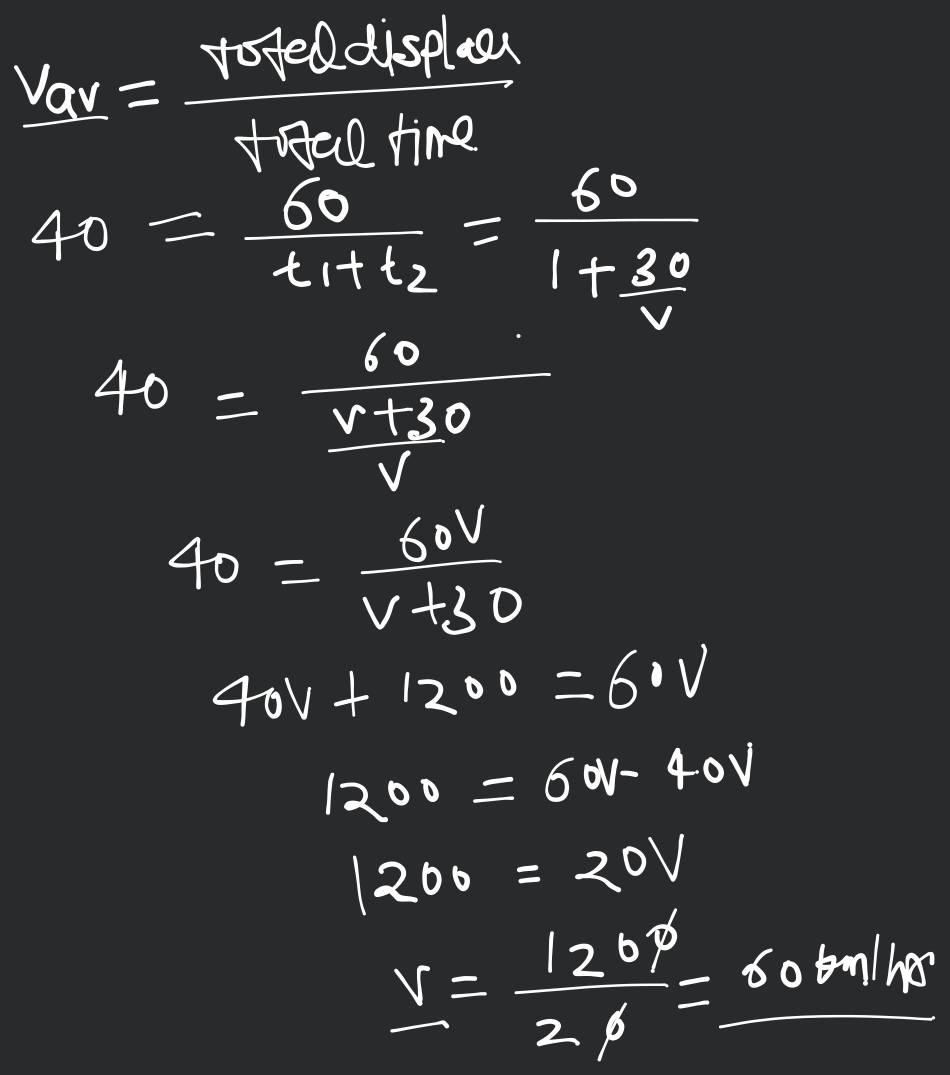 Vav = total displac / total time
40 = 60 / t1+t2 = 60 / 1+30/v
40 = 60 / v+30/v
40 = 60V / v+30
40V + 1200 = 60V
1200 = 60V- 40V
1200 = 20V
v = 1200 / 20 = 60 km/hr